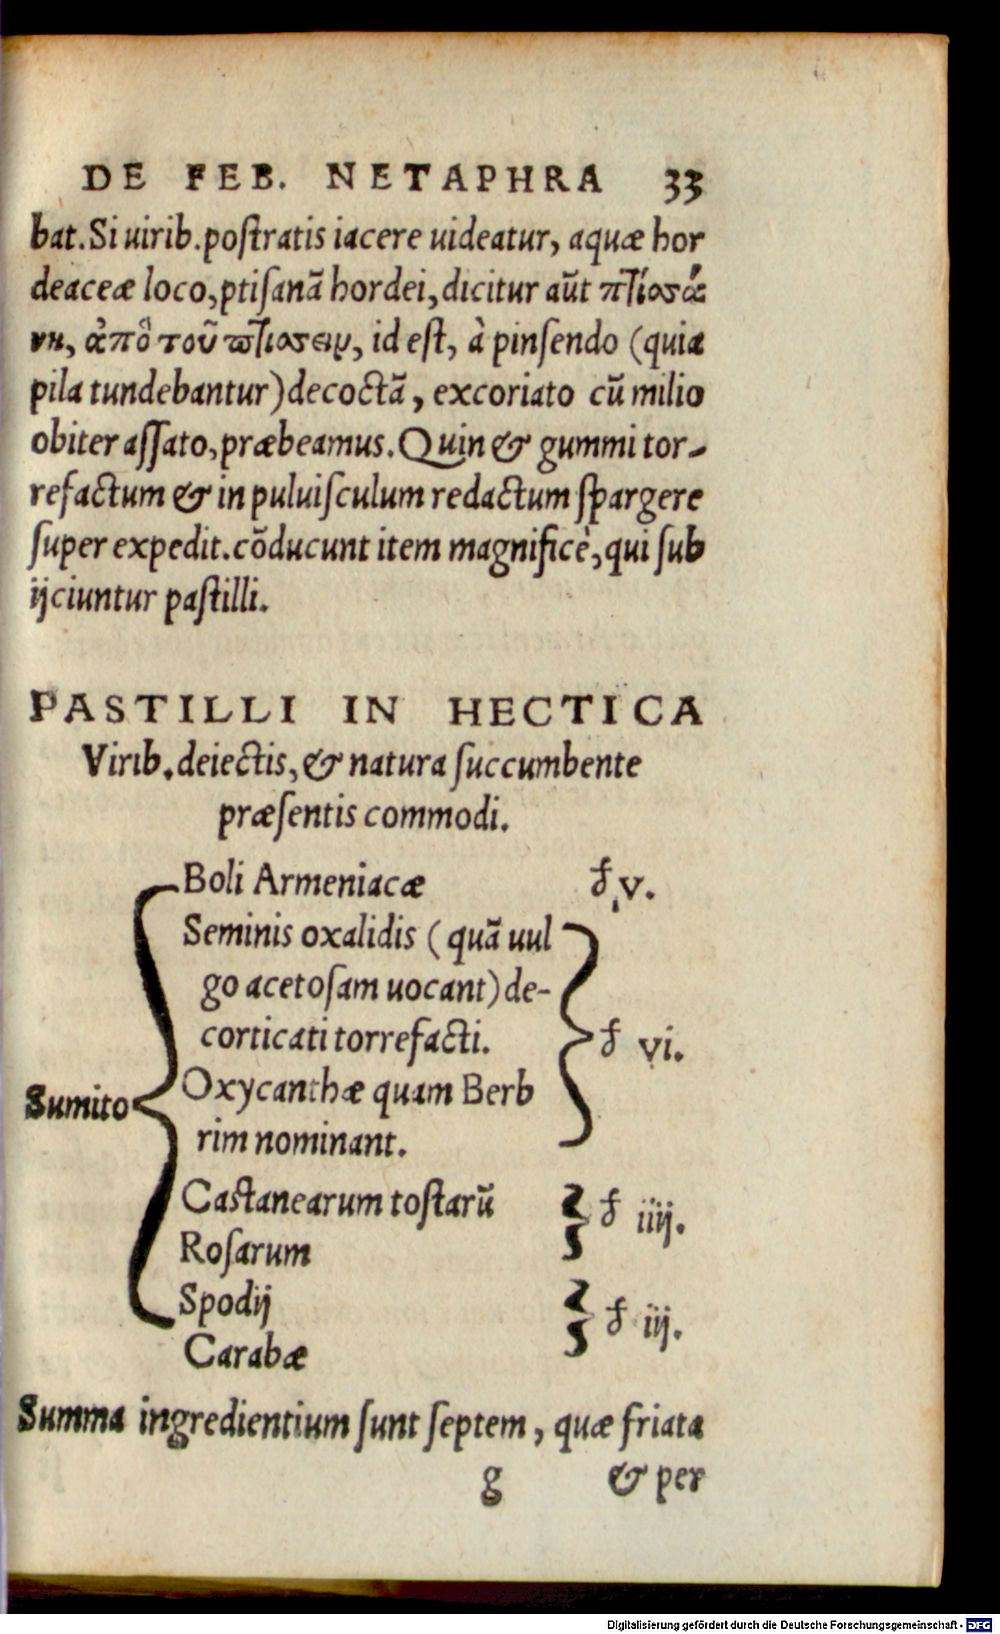 DE FEB. NETAPHRA 33
bat. Si uirib. poſtratis iacere uideatur, aquæ hor
deaceæ loco, ptiſanā hordei, dicitur aūt πτισσά
νη, ἀπὸ τοῦ πτίσσειν, id eſt, à pinſendo (quia
pila tundebantur) decoctā, excoriato cū milio
obiter aſſato, præbeamus. Quin & gummi tor-
refactum & in puluiſculum redactum ſpargere
ſuper expedit. cōducunt item magnificè, qui ſub
ijciuntur paſtilli.
PASTILLI IN HECTICA
Virib. deiectis, & natura ſuccumbente
præſentis commodi.
Boli Armeniacæ ʒ v.
Seminis oxalidis (quā uul
go acetoſam uocant) de-
corticati torrefacti.
ʒ vi.
Oxycanthæ quam Berb
Sumito
rim nominant.
Caſtanearum toſtarū
ʒ iiij.
Roſarum
Spodij
ʒ iij.
Carabæ
Summa ingredientium ſunt ſeptem, quæ friata
g & per
Digitalisierung gefördert durch die Deutsche Forschungsgemeinschaft - DFG